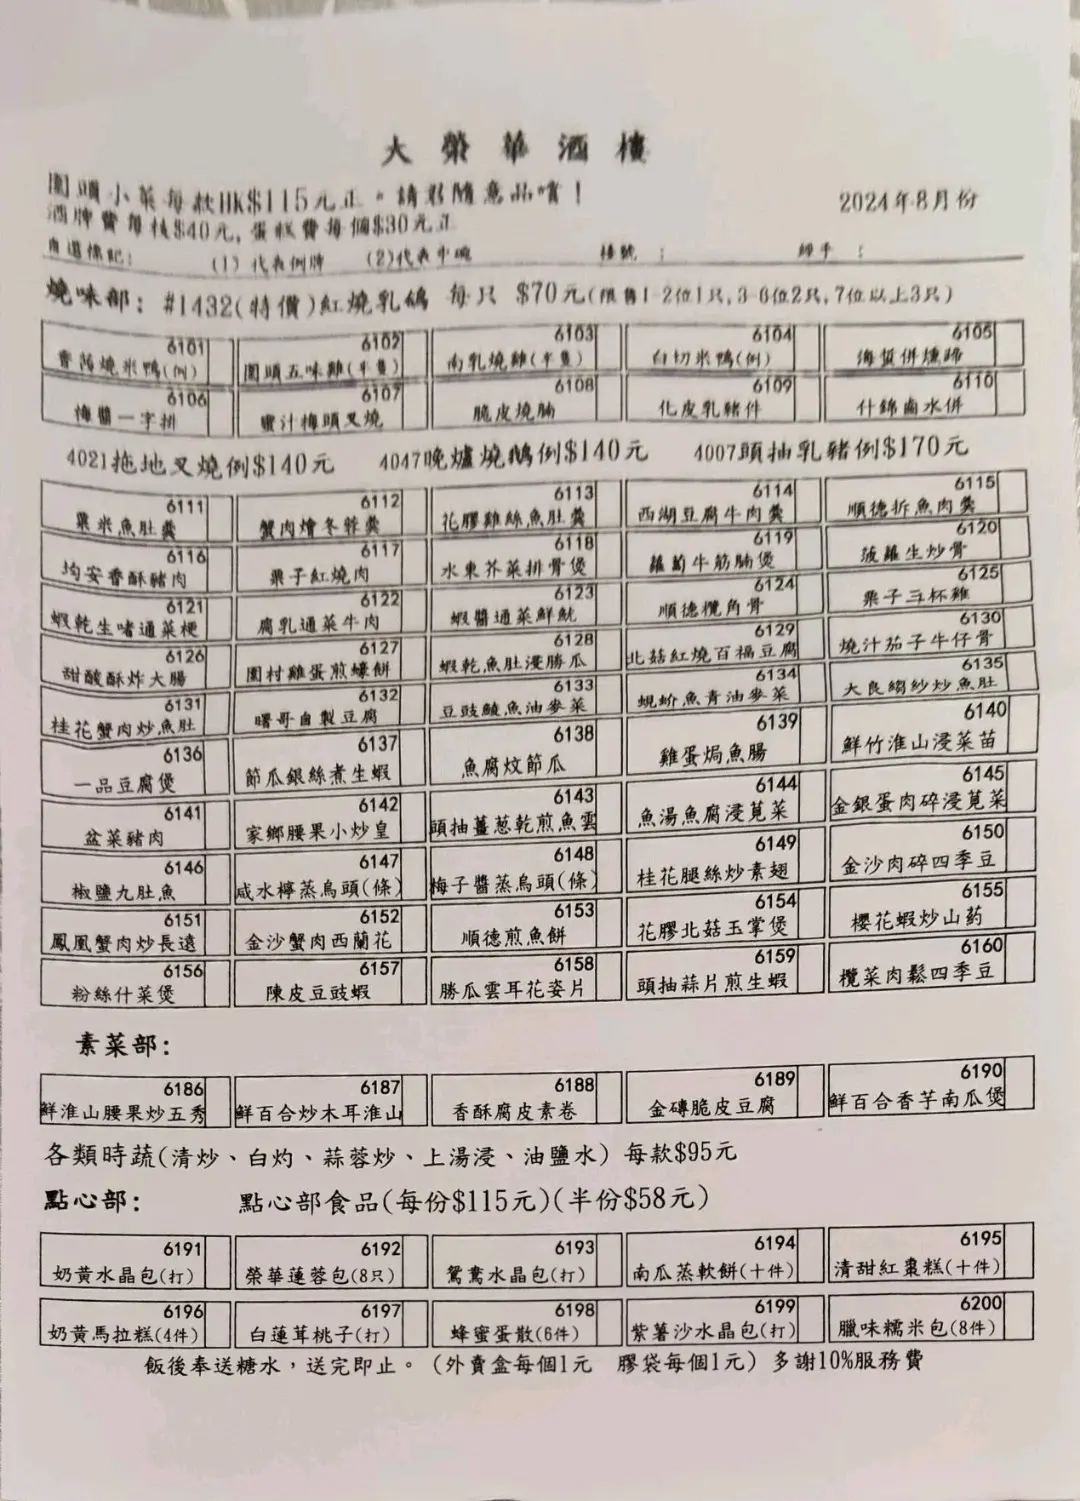 大榮華酒樓
圍頭小菜每款HK$115元正。請君隨意品嚐！
2024年8月份
酒牌費每枝$40元, 蛋糕費每個$30元正
自選標記: (1) 代表例牌 (2)代表中碗 檯號 : 經手 :
燒味部: #1432(特價)紅燒乳鴿 每只 $70元(限售1-2位1只,3-6位2只,7位以上3只)
6101 6102 6103 6104 6105
香茜燒米鴨(例) 圍頭五味雞(半隻) 南乳燒雞(半隻) 白切米鴨(例) 海蜇併燻蹄
6106 6107 6108 6109 6110
梅醬一字排 蜜汁梅頭叉燒 脆皮燒腩 化皮乳豬件 什錦鹵水併
4021拖地叉燒例$140元 4047晚爐燒鵝例$140元 4007頭抽乳豬例$170元
6111 6112 6113 6114 6115
粟米魚肚羹 蟹肉燴冬蓉羹 花膠雞絲魚肚羹 西湖豆腐牛肉羹 順德拆魚肉羹
6116 6117 6118 6119 6120
均安香酥豬肉 栗子紅燒肉 水東芥菜排骨煲 蘿蔔牛筋腩煲 菠蘿生炒骨
6121 6122 6123 6124 6125
蝦乾生啫通菜梗 腐乳通菜牛肉 蝦醬通菜鮮魷 順德欖角骨 栗子三杯雞
6126 6127 6128 6129 6130
甜酸酥炸大腸 圍村雞蛋煎蠔餅 蝦乾魚肚浸勝瓜 北菇紅燒百福豆腐 燒汁茄子牛仔骨
6131 6132 6133 6134 6135
桂花蟹肉炒魚肚 曙哥自製豆腐 豆豉鯪魚油麥菜 蜆蚧魚青油麥菜 大良縐紗炒魚肚
6136 6137 6138 6139 6140
一品豆腐煲 節瓜銀絲煮生蝦 魚腐炆節瓜 雞蛋焗魚腸 鮮竹淮山浸菜苗
6141 6142 6143 6144 6145
盆菜豬肉 家鄉腰果小炒皇 頭抽薑葱乾煎魚雲 魚湯魚腐浸莧菜 金銀蛋肉碎浸莧菜
6146 6147 6148 6149 6150
椒鹽九肚魚 咸水檸蒸烏頭(條) 梅子醬蒸烏頭(條) 桂花腿絲炒素翅 金沙肉碎四季豆
6151 6152 6153 6154 6155
鳳凰蟹肉炒長遠 金沙蟹肉西蘭花 順德煎魚餅 花膠北菇玉掌煲 櫻花蝦炒山葯
6156 6157 6158 6159 6160
粉絲什菜煲 陳皮豆豉蝦 勝瓜雲耳花姿片 頭抽蒜片煎生蝦 欖菜肉鬆四季豆
素菜部:
6186 6187 6188 6189 6190
鮮淮山腰果炒五秀 鮮百合炒木耳淮山 香酥腐皮素卷 金磚脆皮豆腐 鮮百合香芋南瓜煲
各類時蔬(清炒、白灼、蒜蓉炒、上湯浸、油鹽水) 每款$95元
點心部: 點心部食品(每份$115元)(半份$58元)
6191 6192 6193 6194 6195
奶黃水晶包(打) 榮華蓮蓉包(8只) 鴛鴦水晶包(打) 南瓜蒸軟餅(十件) 清甜紅棗糕(十件)
6196 6197 6198 6199 6200
奶黃馬拉糕(4件) 白蓮茸桃子(打) 蜂蜜蛋散(6件) 紫薯沙水晶包(打) 臘味糯米包(8件)
飯後奉送糖水，送完即止。(外賣盒每個1元 膠袋每個1元) 多謝10%服務費